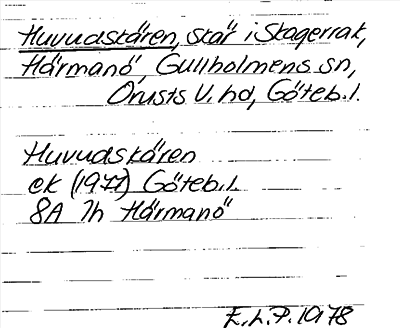 Huvudskären, skär i Skagerrak,
Härmanö, Gullholmens sn,
Orusts V. hd, Göteb. l.
Huvudskären
ek (1977) Göteb. l.
8A 7h Härmanö
E.L.P. 1978